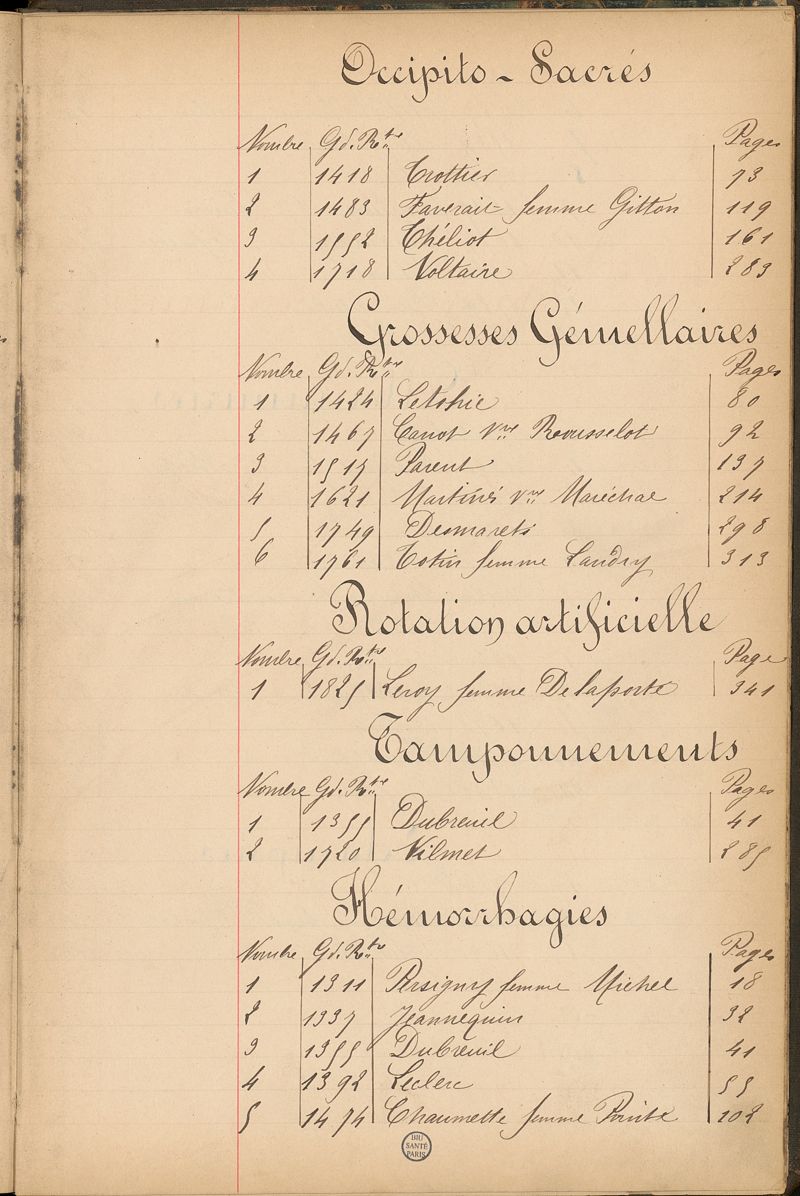 Occipito - Sacrés
Nombre Gd. Rtre Pages
1 1418 Trottier 73
2 1483 Faverait femme Gitton 119
3 1552 Chéliot 161
4 1718 Voltaire 283
Grossesses Gémellaires
Nombre Gd. Rtre Pages
1 1424 80
2 1467 Canot Vve Rousselot 92
3 1517 Parent 137
4 1621 Martinès Vve Maréchal 214
5 1749 Desmarets 298
6 1761 Totin femme Landry 313
Rotation artificielle
Nombre Gd. Rtre Page
1 1825 Leroy femme Delaporte 341
Tamponnements
Nombre Gd. Rtre Pages
1 1355 Dubreuil 41
2 1720 Vilmet 285
Hémorrhagies
Nombre Gd. Rtre Pages
1 1311 Persigny femme Michel 18
2 1337 Jeannequin 32
3 1355 Dubreuil 41
4 1392 Leclerc 55
5 1474 Chaumette femme Pointe 102
BIU
SANTÉ
PARIS